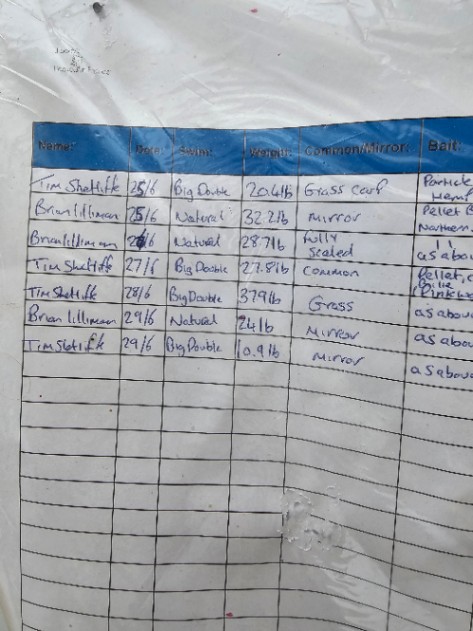 Name: Date: Swim: Weight: Common/Mirror: Bait:
Tim Shetliffe 25/6 Big Double 20.4lb Grass carp Particle
Hemp
Brian Illiman 25/6 Natural 32.2lb Mirror Pellet
Northern
Brian Illiman Natural 28.7lb fully scaled as abou
Tim Shetliffe 27/6 Big Double common Pellet,
Tim Shetliffe 28/6 Big Double Grass as abou
Brian Illiman 29/6 Natural 24lb Mirror as abou
Tim Shetliffe 29/6 Big Double 10.9lb Mirror as abou